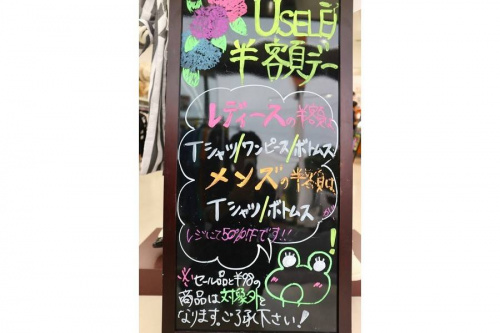 USELET
半額デー
レディースの半額は
Tシャツ/ワンピース/ボトムス
メンズの半額は
Tシャツ/ボトムス
レジにて50%OFFです!!
!
※セール品と¥98の
商品は対象外と
なります。ご了承下さい!